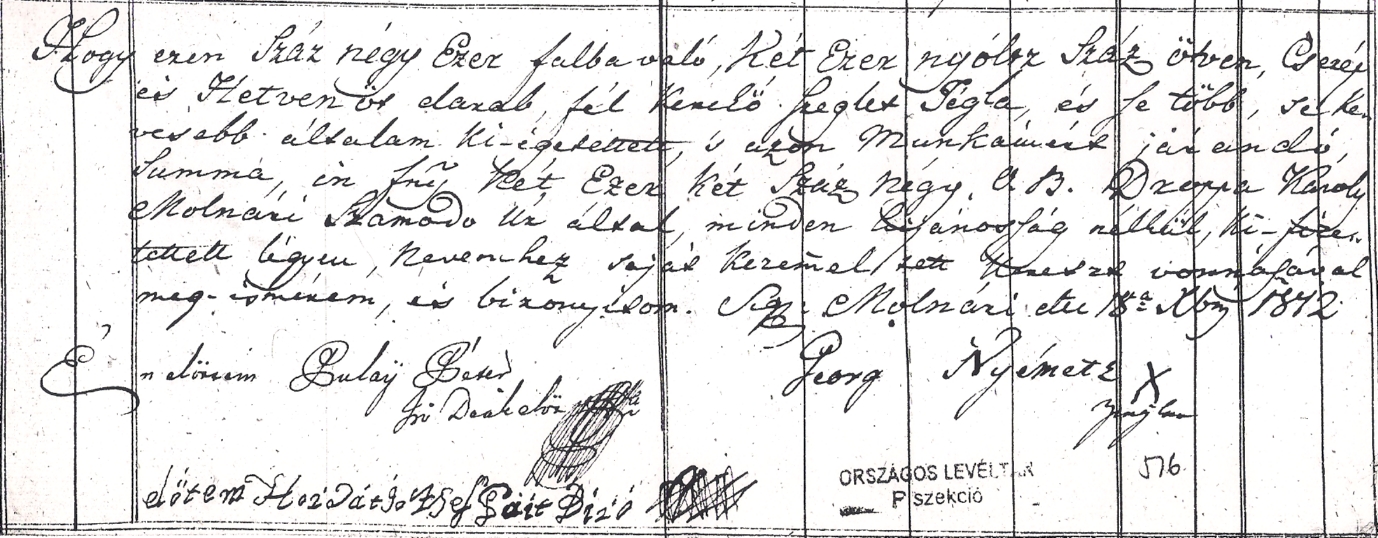 Hogy ezen Száz négy Ezer falba való, Két Ezer nyólcz Száz ötven, Cserép
és Hetven ös darab, fél Kerelő szeglet Tégla, és se több, se ke-
vesebb általam ki-égetettett, 's azon Munkáiért járandó,
Summa, in Két Ezer két Száz négy, Droppa Károly
Molnári Számadó Úr által, minden híjánosság nélkül, ki-fize-
tettett légyen, Nevemhez saját kezemel tett Kereszt vonnásával
meg-ismérem, és bizonyitom. Sig. Molnári die 18ª Xbris 1812
Én előttem Bulaÿ Péter Georg Nyémetz X
előtem József Bíró
ORSZÁGOS LEVÉLTÁR
P szekció
516